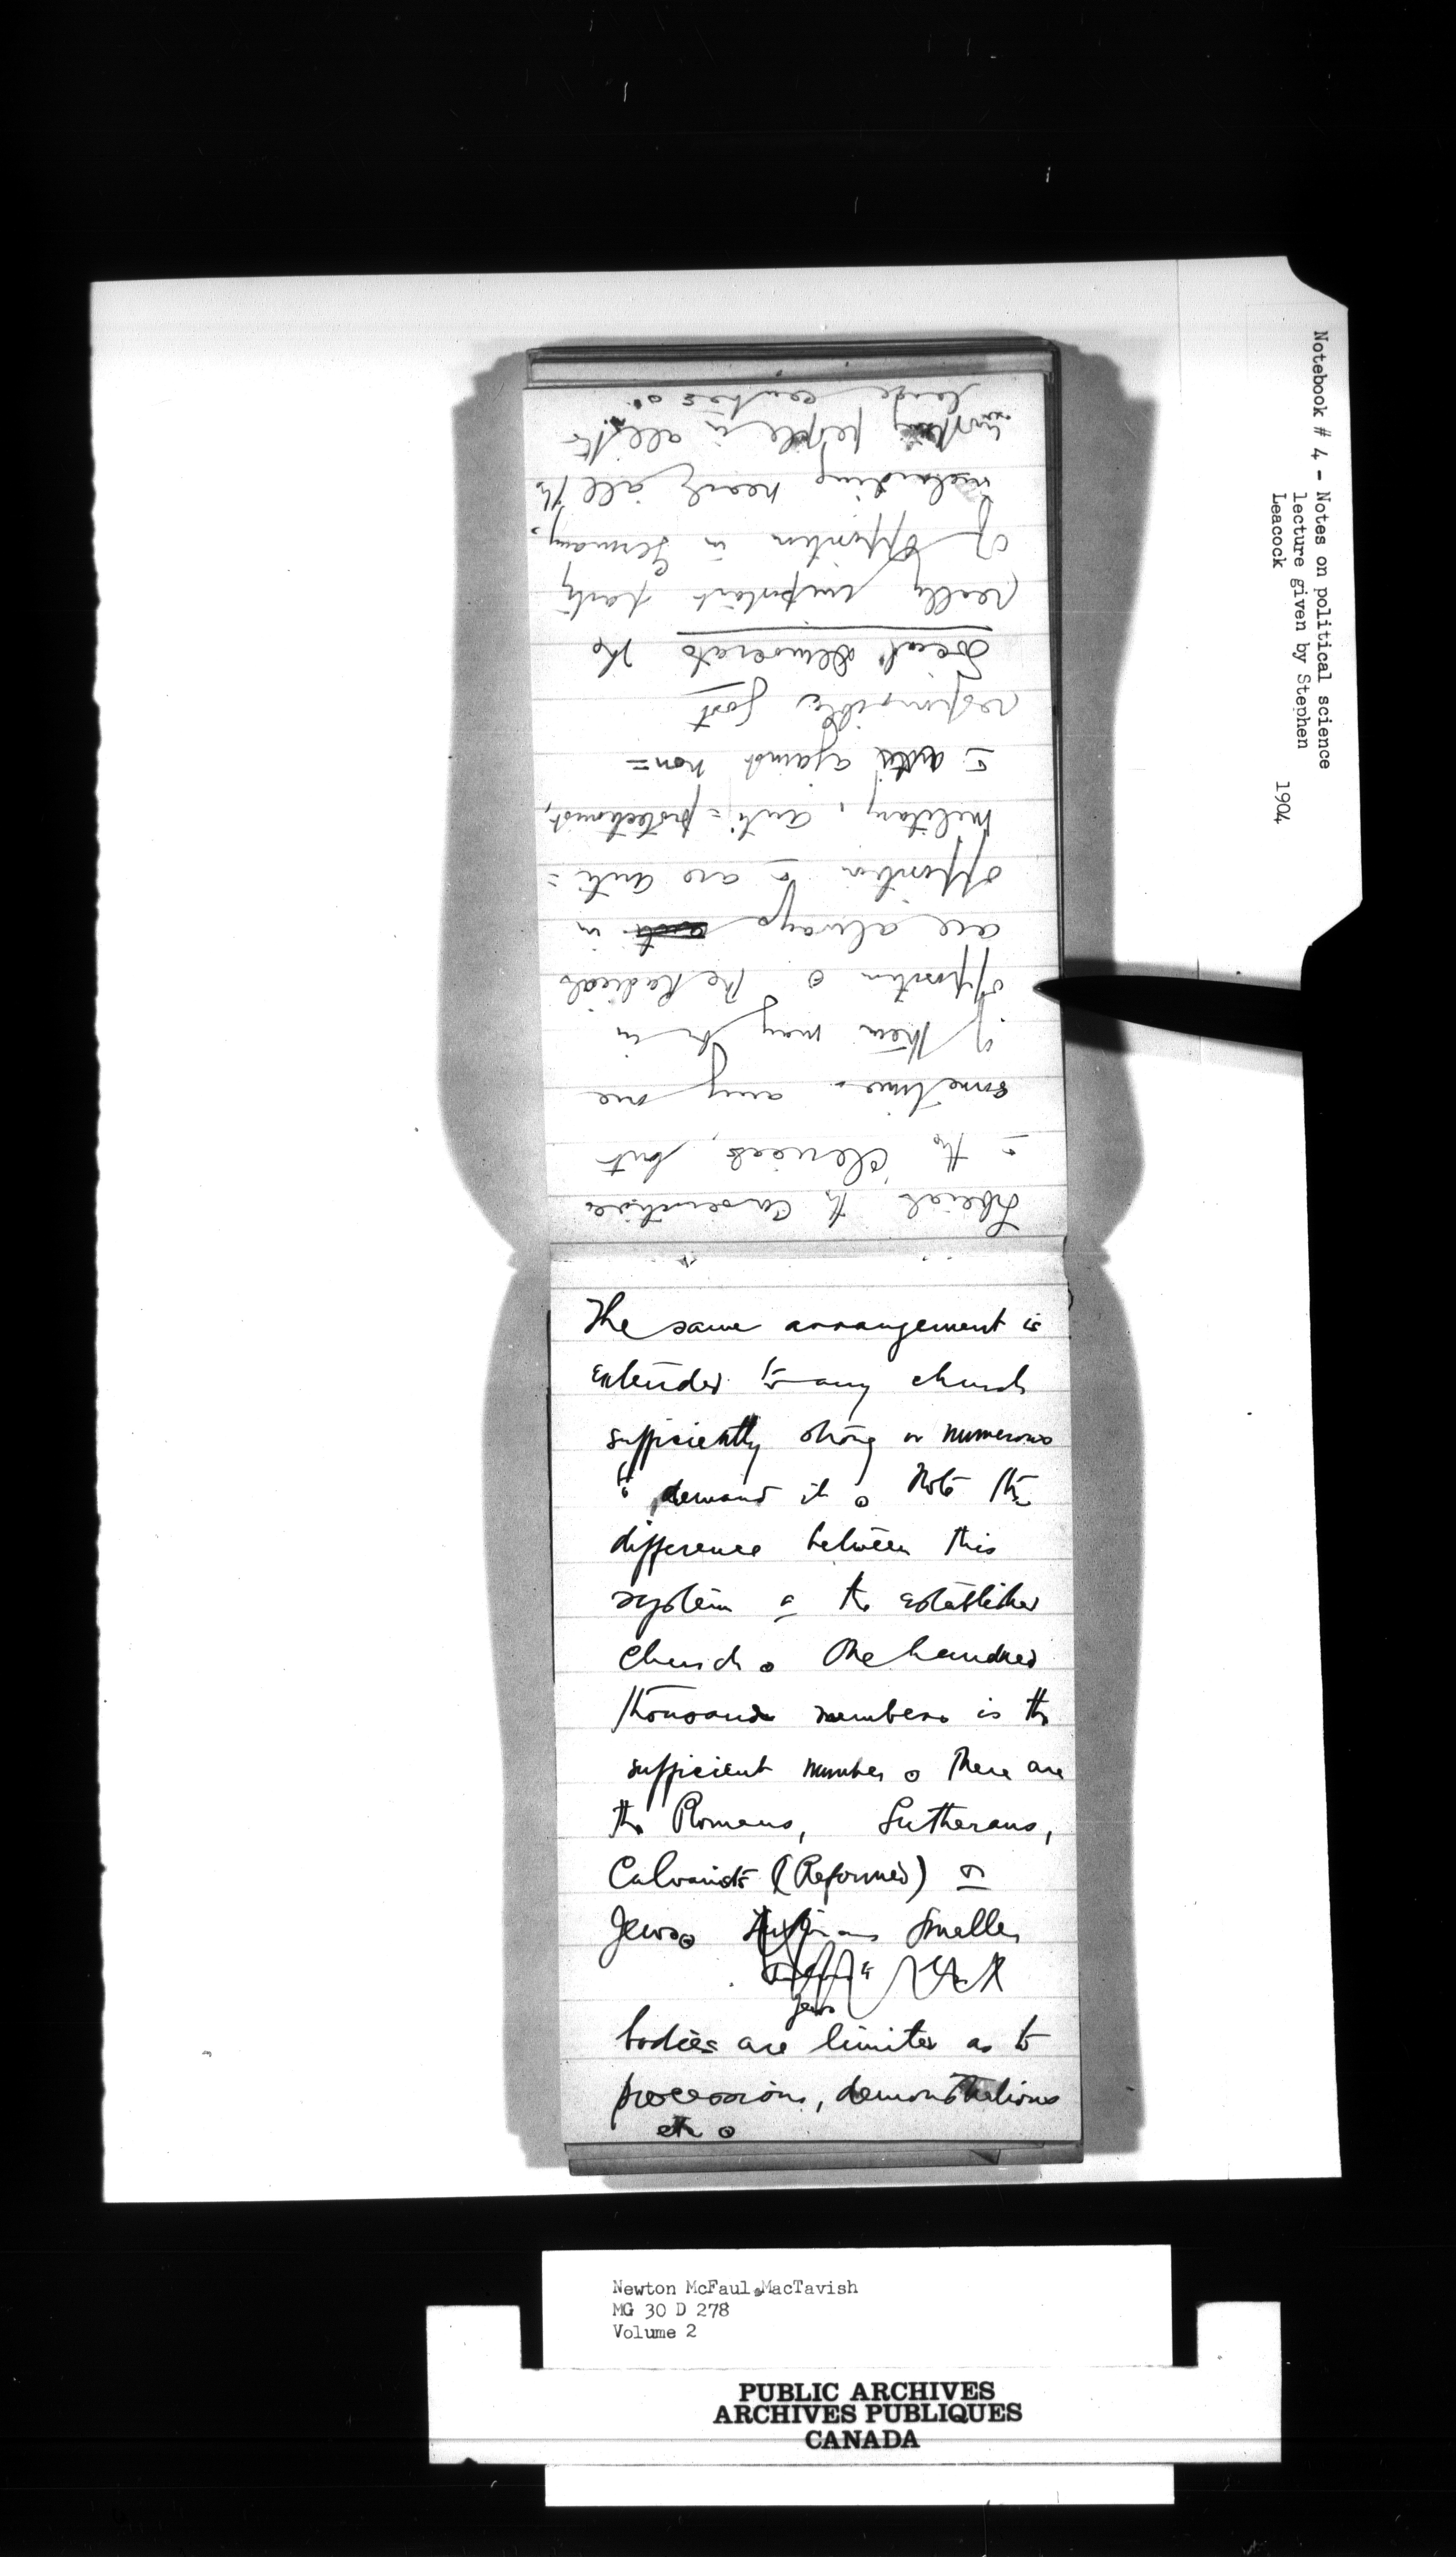 Notebook # 4 - Notes on political science
lecture given by Stephen
Leacock 1904
Liberals the Conservatives
& the Clericals, but
sometimes any one
of them may be in
opposition. The Radicals
are always in
opposition & are anti=
military, anti=protectionist,
& against non=
responsible govt
Social democrats the
really important party
of opposition in Germany,
including nearly all the
working people in all the
large centres.
The same arrangement is
extended to any church
sufficiently strong or numerous
to demand it. Note the
difference between this
system & the established
church. One hundred
thousand members is the
sufficient number. There are
the Romans, Lutherans,
Calvanists (Reformed) &
Jews. Smaller
Jews
bodies are limited as to
processions, demonstrations
etc.
Newton McFaul MacTavish
MG 30 D 278
Volume 2
PUBLIC ARCHIVES
ARCHIVES PUBLIQUES
CANADA